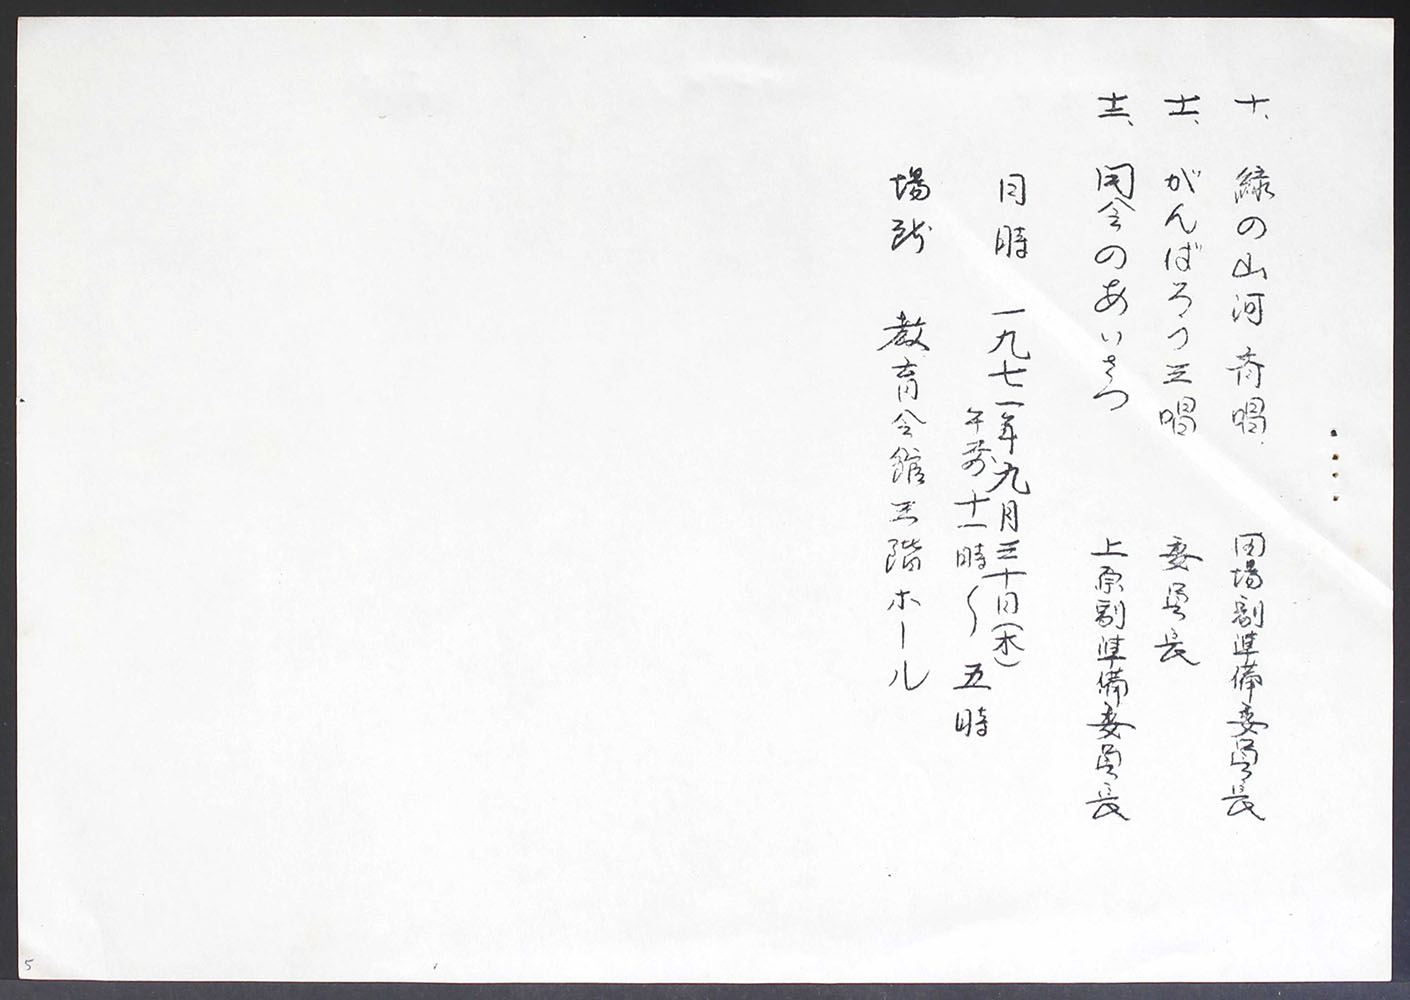 十、 緑の山河斉唱 田場副準備委員長
十一、 がんばろう三唱 委員長
十二、 閉会のあいさつ 上原副準備委員長
日時 一九七一年九月三十日(木)
午前十一時〜五時
場所 教育会館三階ホール
5